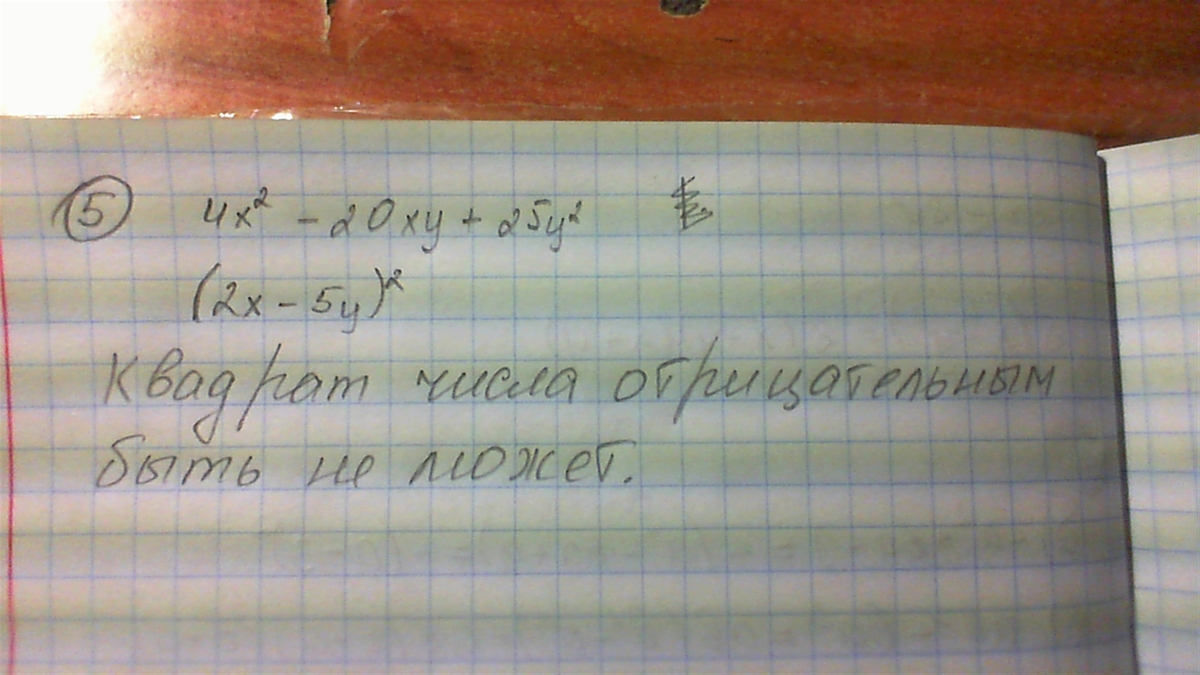 ⑤ 4x² - 20xy + 25y²
(2x - 5y)²
Квадрат числа отрицательным
быть не может.